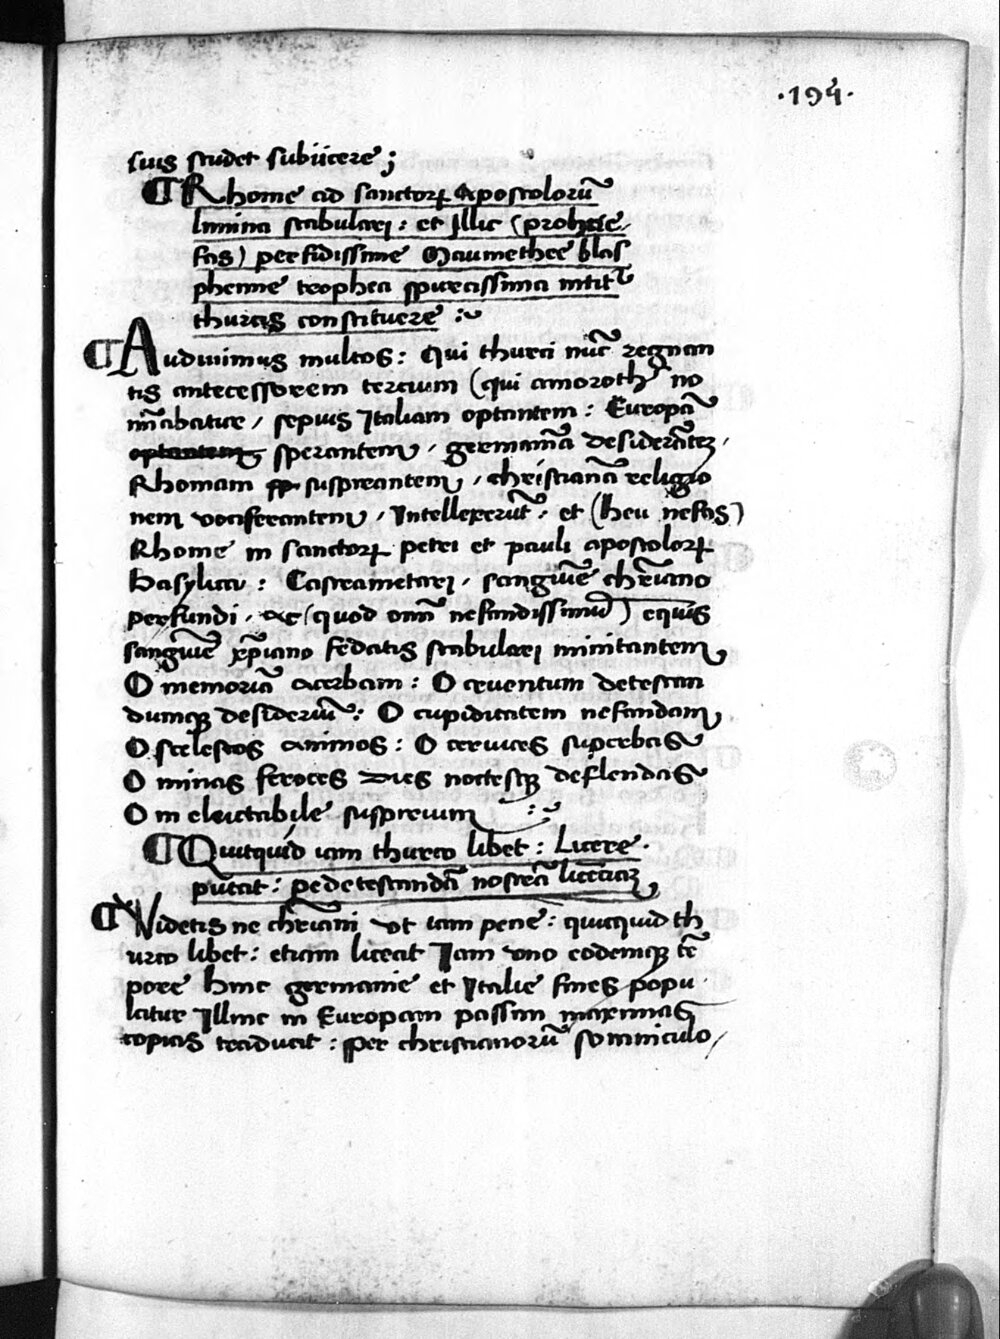 ·194·
suis studet subiicere ;
Rhome ad sanctoꝝ Apostolorū
limina stabulari : et Illic (proh
fas) perfidissime Maumethee blas
pheme trophea spurcissima
thurcis constituere :~
Audiuimus multos : Qui thurci nūc regnan
tis antecessorem tercium (qui amoroth no
mīabatur / sepius Italiam optantem : Europā
optantem sperantem / germaniā desiderāteꝫ /
Rhomam suspirantem / christianā religio
nem vociferantem / Intellexerūt · et (heu nefas)
Rhome in sanctoꝝ petri et pauli apostoloꝝ
basylica : Castrametari · sanguīe chr̄iano
perfundi · ac (quod om̄ nefandissimū) equis
sanguīe xp̄iano fedatis stabulari minitantem
O memoriā acerbam : O euentum detestan
dumqꝫ desideriū : O cupiditatem nefandam
O scelestos animos : O ceruices superbas
O minas feroces dies noctesqꝫ deflendas
O in eluctabile suspirium :~
Quitquid iam thurco libet : Licere ·
putat : ꝑ detestandā nostrā
Videtis ne chr̄iani vt iam pene : quicquid th
urco libet : etiam liceat Iam vno eodemqꝫ tē
pore hinc germanie et Italie fines popu
latur Illinc in Europam passim maximas
copias traducit : per christianorū somniculo/